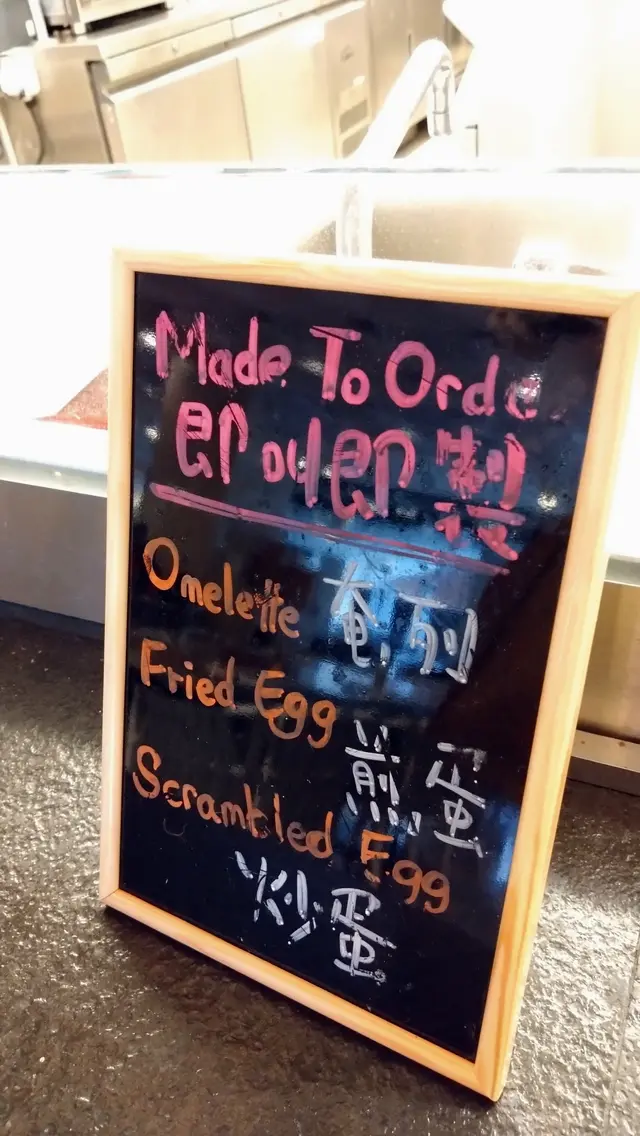 Made To Order
即叫即製
Omelette 奄列
Fried Egg
煎蛋
Scrambled Egg
炒蛋